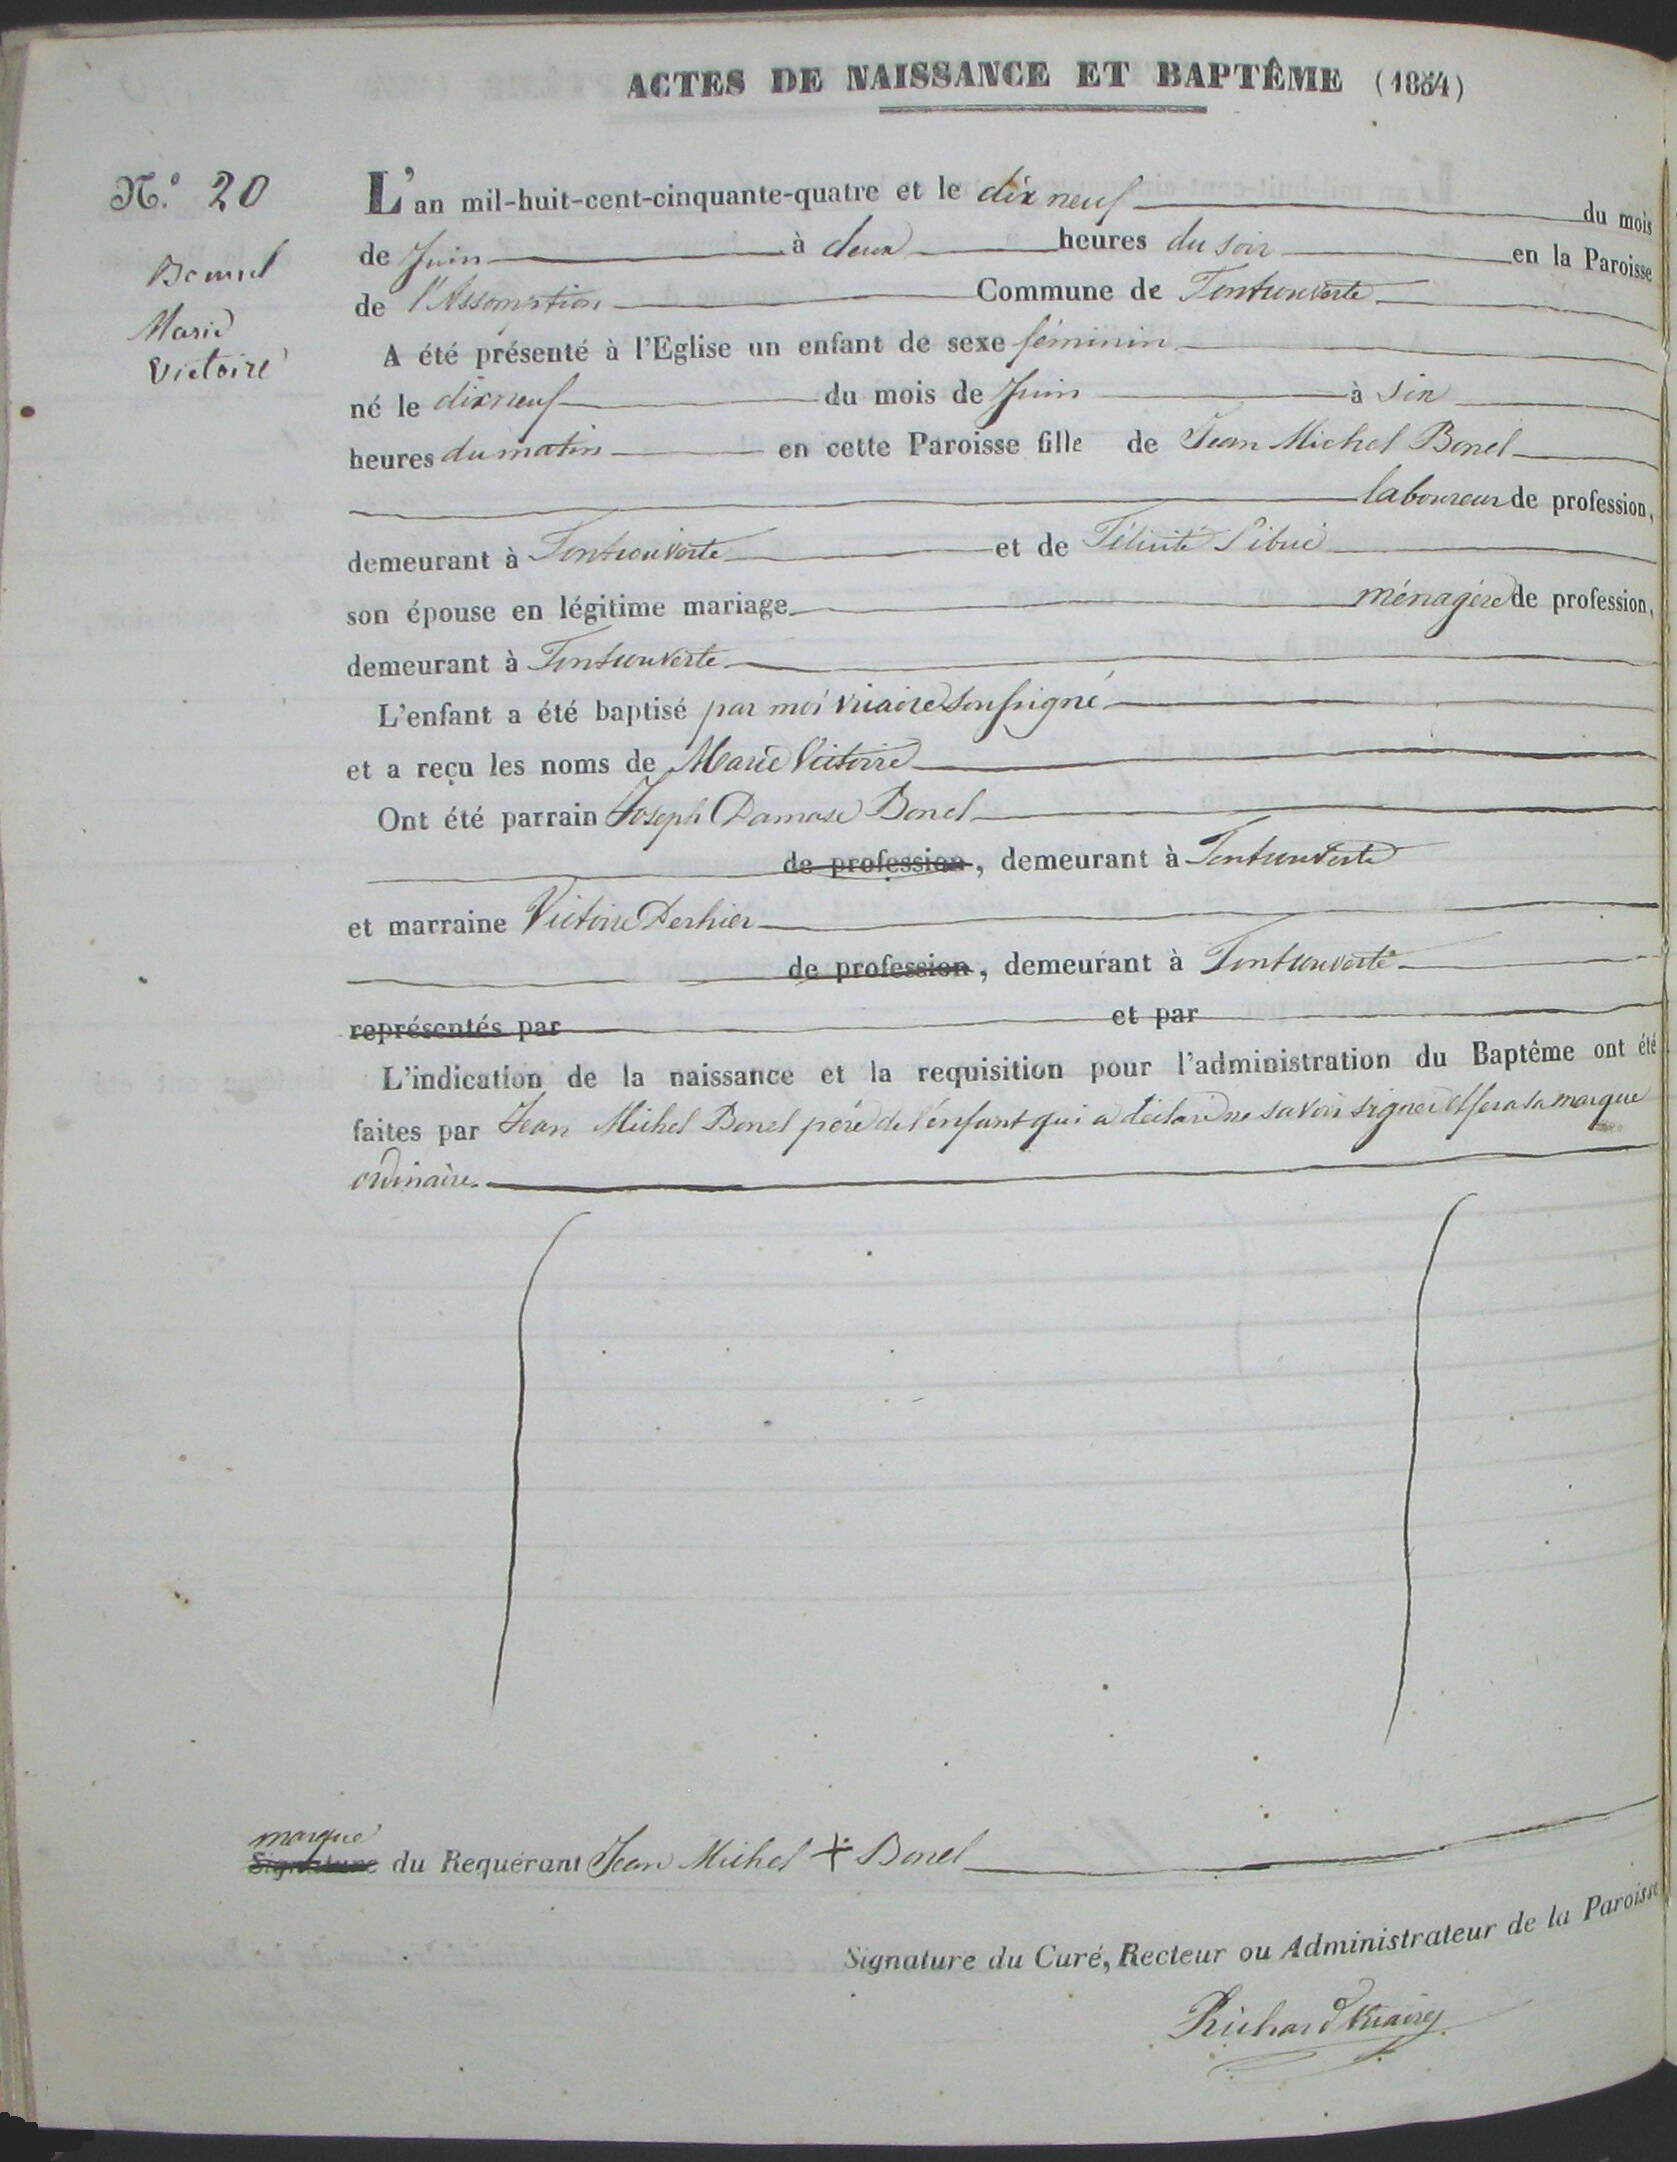 ACTES DE NAISSANCE ET BAPTÊME (1854)
N.° 20
Marie
Victoire
L'an mil-huit-cent-cinquante-quatre et le dix neuf du mois
de Juin à deux heures du soir en la Paroisse
de l'Assomption Commune de Fontcouverte
A été présenté à l'Eglise un enfant de sexe féminin
né le dix neuf du mois de Juin à six
heures du matin en cette Paroisse fille de Jean Michel Bonel
laboureur de profession,
demeurant à Fontcouverte et de Félicité
son épouse en légitime mariage ménagère de profession,
demeurant à Fontcouverte
L'enfant a été baptisé par moi vicaire soussigné
et a reçu les noms de Marie Victoire
Ont été parrain Joseph Damase Bonel
de profession, demeurant à Fontcouverte
et marraine Victoire
de profession, demeurant à Fontcouverte
représentés par et par
L'indication de la naissance et la requisition pour l'administration du Baptême ont été
faites par Jean Michel Bonel père de l'enfant qui a déclaré ne savoir signer et fera sa marque
ordinaire.
marque
Signature du Requérant Jean Michel + Bonel
Signature du Curé, Recteur ou Administrateur de la Paroisse
Richard Vicaire